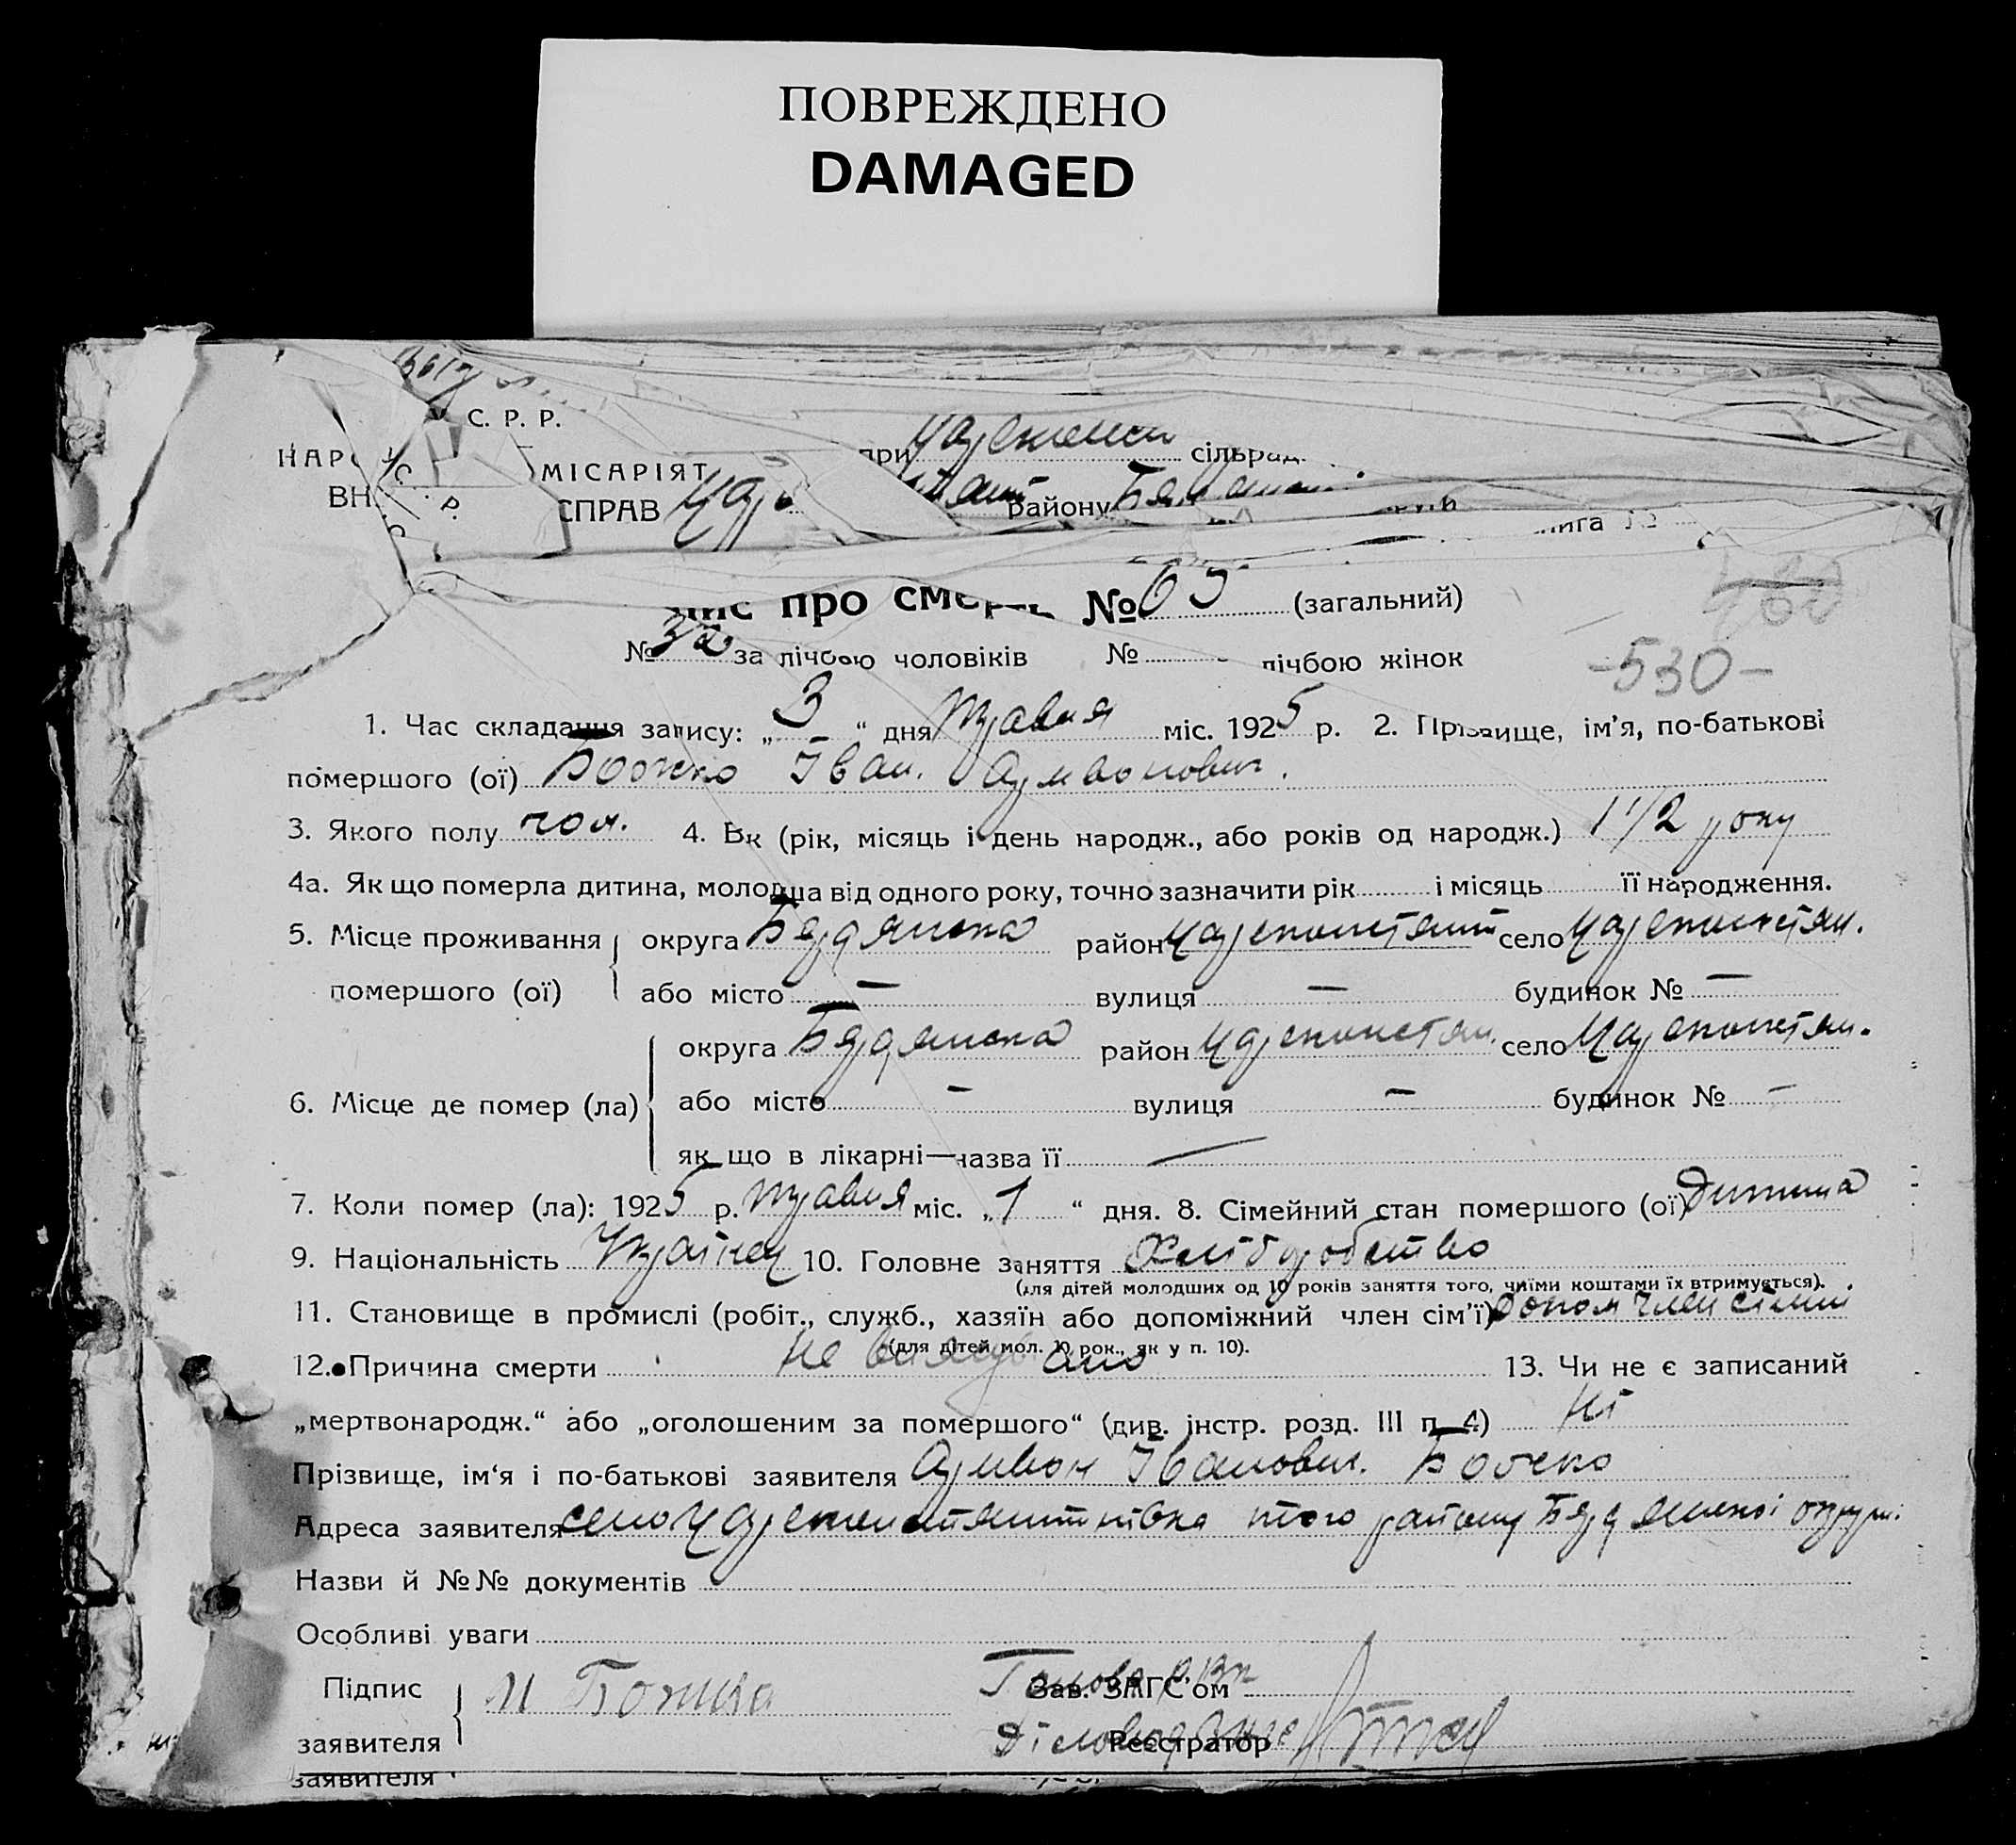 ПОВРЕЖДЕНО
DAMAGED
С. Р. Р.
при сільрад.
МІСАРІЯТ
СПРАВ району
про № 65 (загальний)
№ 32 за лічбою чоловіків № лічбою жінок
-530-
1. Час складання запису: „ 3 “ дня травня міс. 1925 р. 2. Прізвище, ім’я, по-батькові
помершого (ої) Божко Іван.
3. Якого полу чол. 4. Вік (рік, місяць і день народж., або років од народж.) 1 1/2 року
4а. Як що померла дитина, молодша від одного року, точно зазначити рік і місяць її народження.
5. Місце проживання округа Бердянська район Царекостянт село Царекостян.
помершого (ої) або місто — вулиця — будинок № —
округа Бердянська район Царекостян. село Царекостян.
6. Місце де помер (ла) або місто — вулиця — будинок № —
як що в лікарні—назва її —
7. Коли помер (ла): 1925 р. травня міс. „ 1 “ дня. 8. Сімейний стан помершого (ої) Дитина
9. Національність Українец 10. Головне заняття Хліборобство
(для дітей молодших од 10 років заняття того, чиїми коштами їх втримується).
11. Становище в промислі (робіт., служб., хазяїн або допоміжний член сім’ї) допом член сімьі
(для дітей мол. 10 рок., як у п. 10).
12. Причина смерти не 13. Чи не є записаний
„мертвонародж.“ або „оголошеним за помершого“ (див. інстр. розд. III п. 4) ні
Прізвище, ім‘я і по-батькові заявителя Іванович. Божко
Адреса заявителя село того району Бердянської округи.
Назви й №№ документів
Особливі уваги
Підпис Божко Голова РВК Зав. ЗАГС’ом
заявителя Діловод Реєстратор
заявителя